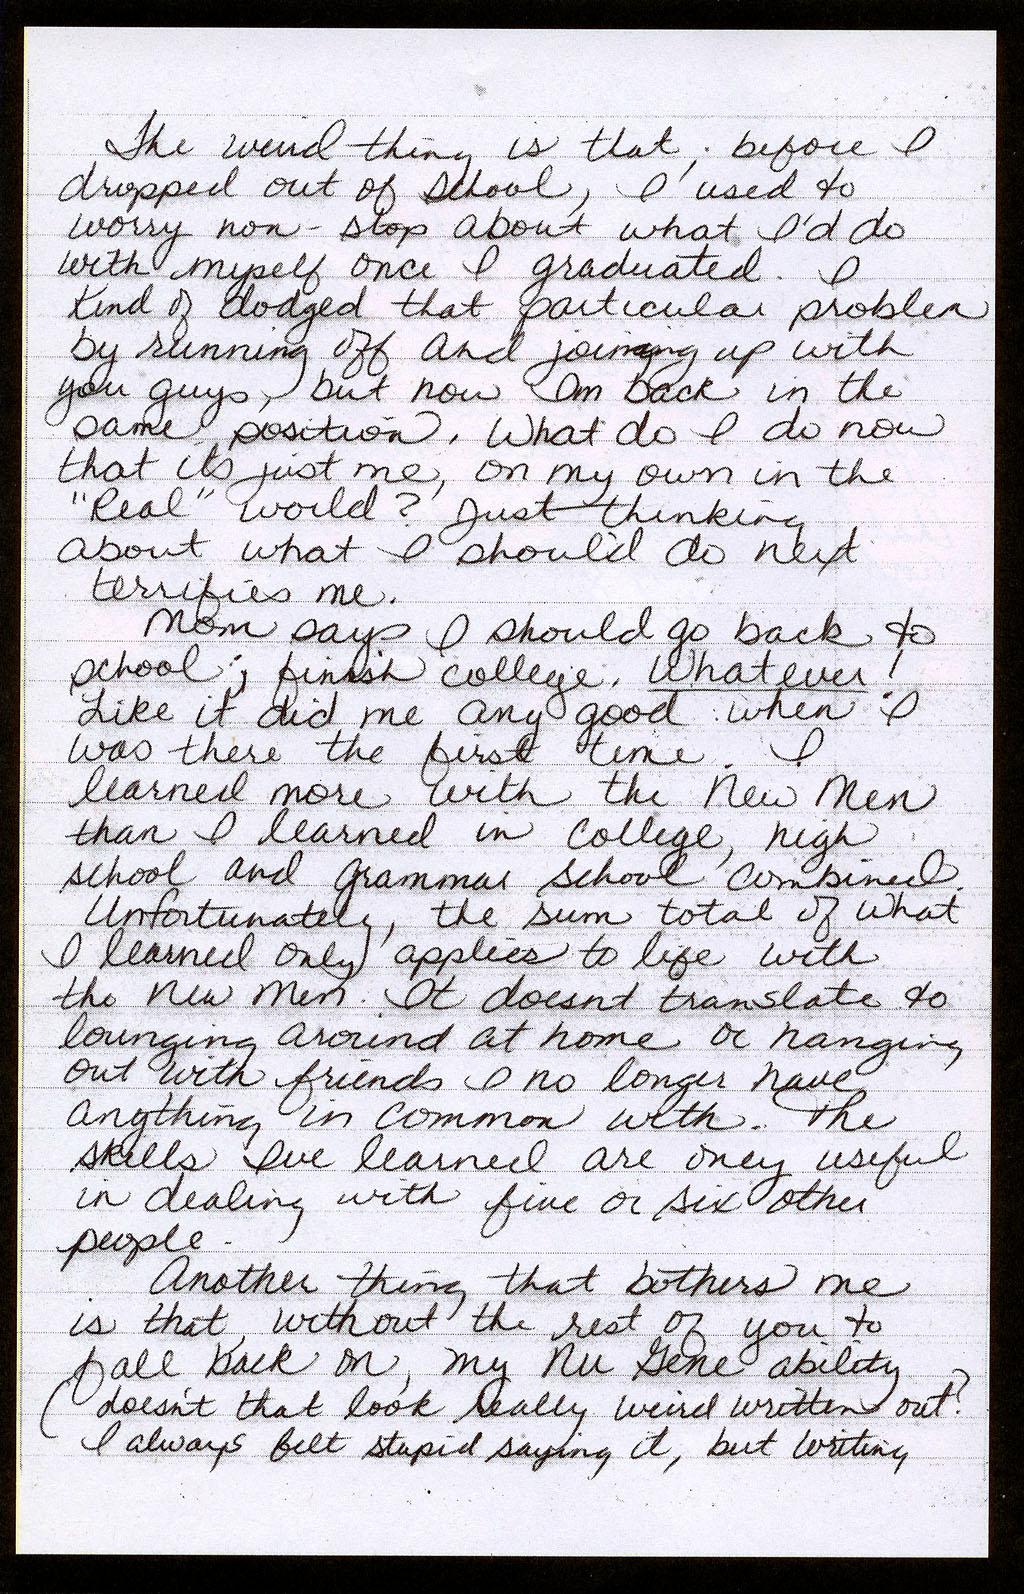 The weird thing is that, before I
dropped out of school, I used to
worry non-stop about what I'd do
with myself once I graduated. I
kind of dodged that particular problem
by running off and joining up with
you guys, but now Im back in the
same position. What do I do now
that it's just me, on my own in the
"Real" world? Just thinking
about what I should do next
terrifies me.
Mom says I should go back to
school; finish college. Whatever!
Like it did me any good when I
was there the first time. I
learned more with the New Men
than I learned in college, high
school and grammar school combined.
Unfortunately, the sum total of what
I learned only applies to life with
the New Men. It doesnt translate to
lounging around at home or hanging
out with friends I no longer have
anything in common with. The
skills Ive learned are only useful
in dealing with five or six other
people.
Another thing that bothers me
is that, without the rest of you to
fall back on, my Nu Gene ability
(doesn't that look really weird written out?
I always felt stupid saying it, but writing